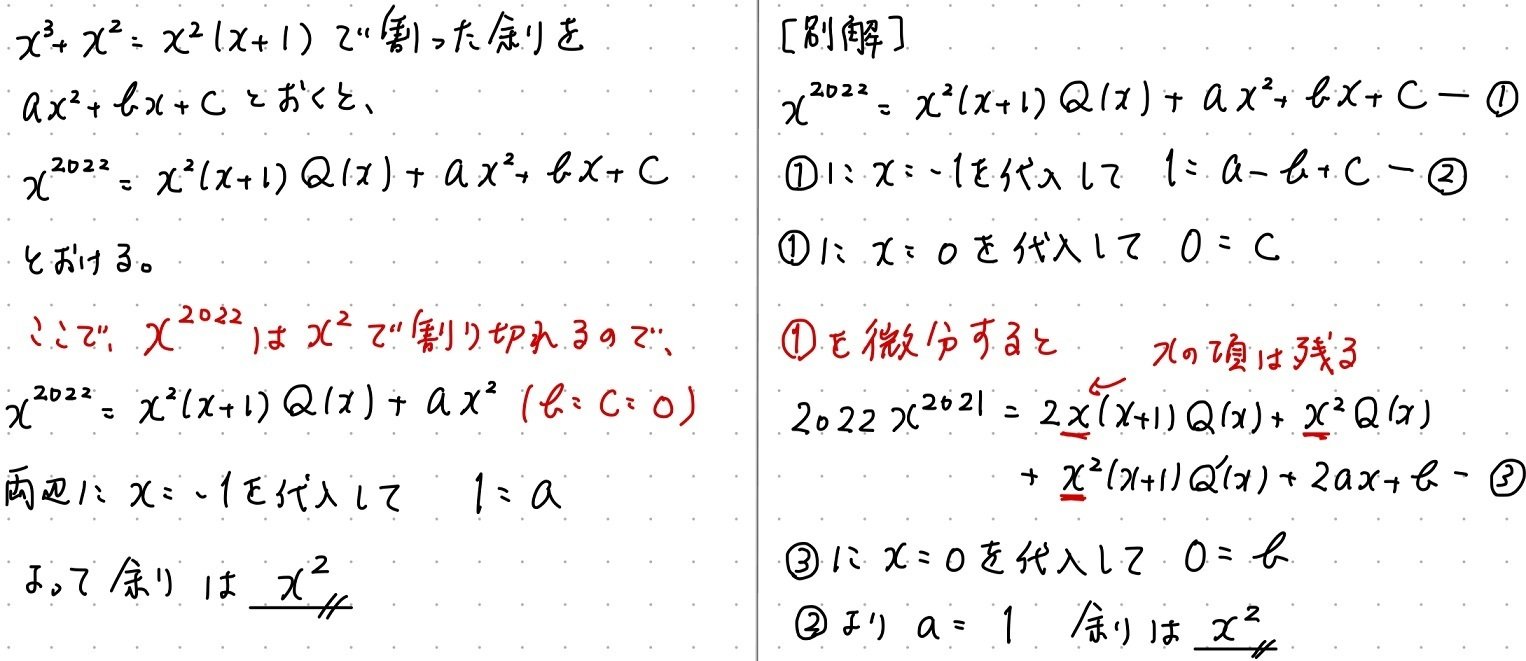 x³+x²=x²(x+1) で割った余りを
ax²+bx+c とおくと、
x²⁰²²=x²(x+1)Q(x)+ax²+bx+c
とおける。
ここで、x²⁰²²は x²で割り切れるので、
x²⁰²²=x²(x+1)Q(x)+ax² (b=c=0)
両辺に x=-1を代入して 1=a
よって余りは x²
[別解]
x²⁰²²=x²(x+1)Q(x)+ax²+bx+c-①
①に x=-1を代入して 1=a-b+c-②
①に x=0を代入して 0=c
①を微分すると xの項は残る
2022x²⁰²¹=2x(x+1)Q(x)+x²Q(x)
+x²(x+1)Q'(x)+2ax+b-③
③に x=0を代入して 0=b
②より a=1 余りは x²